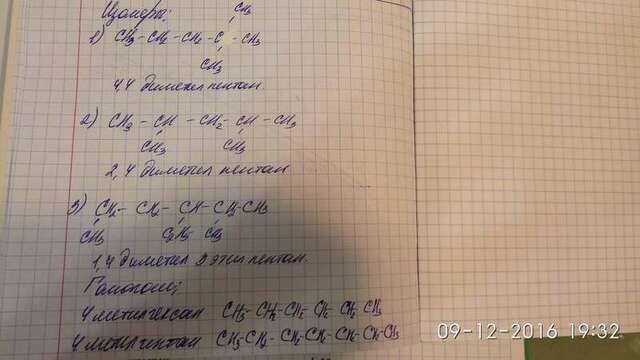 Изомеры:
CH3
1) CH3-CH2-CH2-C-CH3
CH3
4,4 диметил пентан
2) CH3-CH-CH2-CH-CH3
CH3 CH3
2,4 диметил пентан
3) CH2-CH2-CH-CH-CH3
CH3 C2H5 CH3
1,4 диметил 3 этил пентан
Гомологи:
4 метилгексан CH3-CH2-CH2 CH2 CH2 CH3
4 метилгептан CH3-CH2-CH2-CH2-CH2-CH2-CH3
09-12-2016 19:32